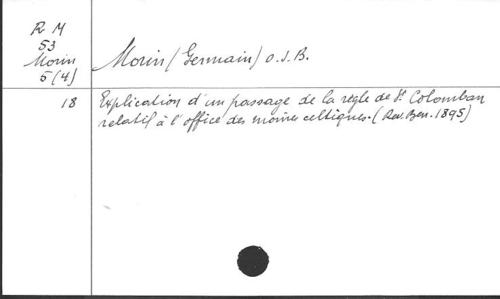 R M
53
Morin
5(4)
Morin (Germain) O.S.B.
18
Explication d'un passage de la règle de St Colomban
relatif à l'office des moines celtiques. (Rev. Ben. 1895)